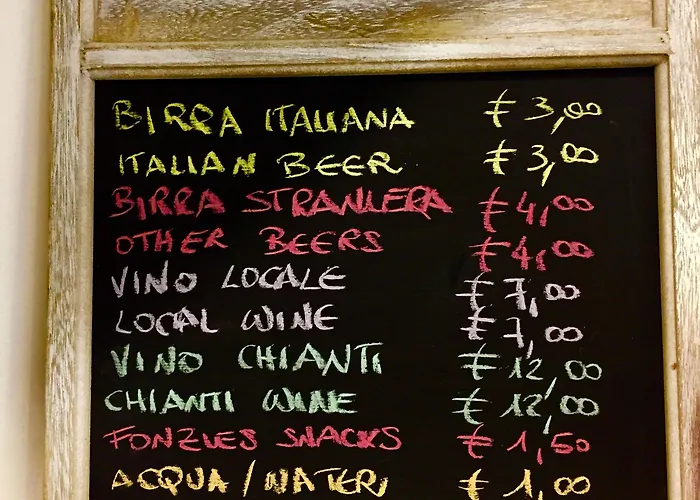 BIRRA ITALIANA € 3,00
ITALIAN BEER € 3,00
BIRRA STRANIERA € 4,00
OTHER BEERS € 4,00
VINO LOCALE € 7,00
LOCAL WINE € 7,00
VINO CHIANTI € 12,00
CHIANTI WINE € 12,00
FONZIES SNACKS € 1,50
ACQUA / WATER € 1,00